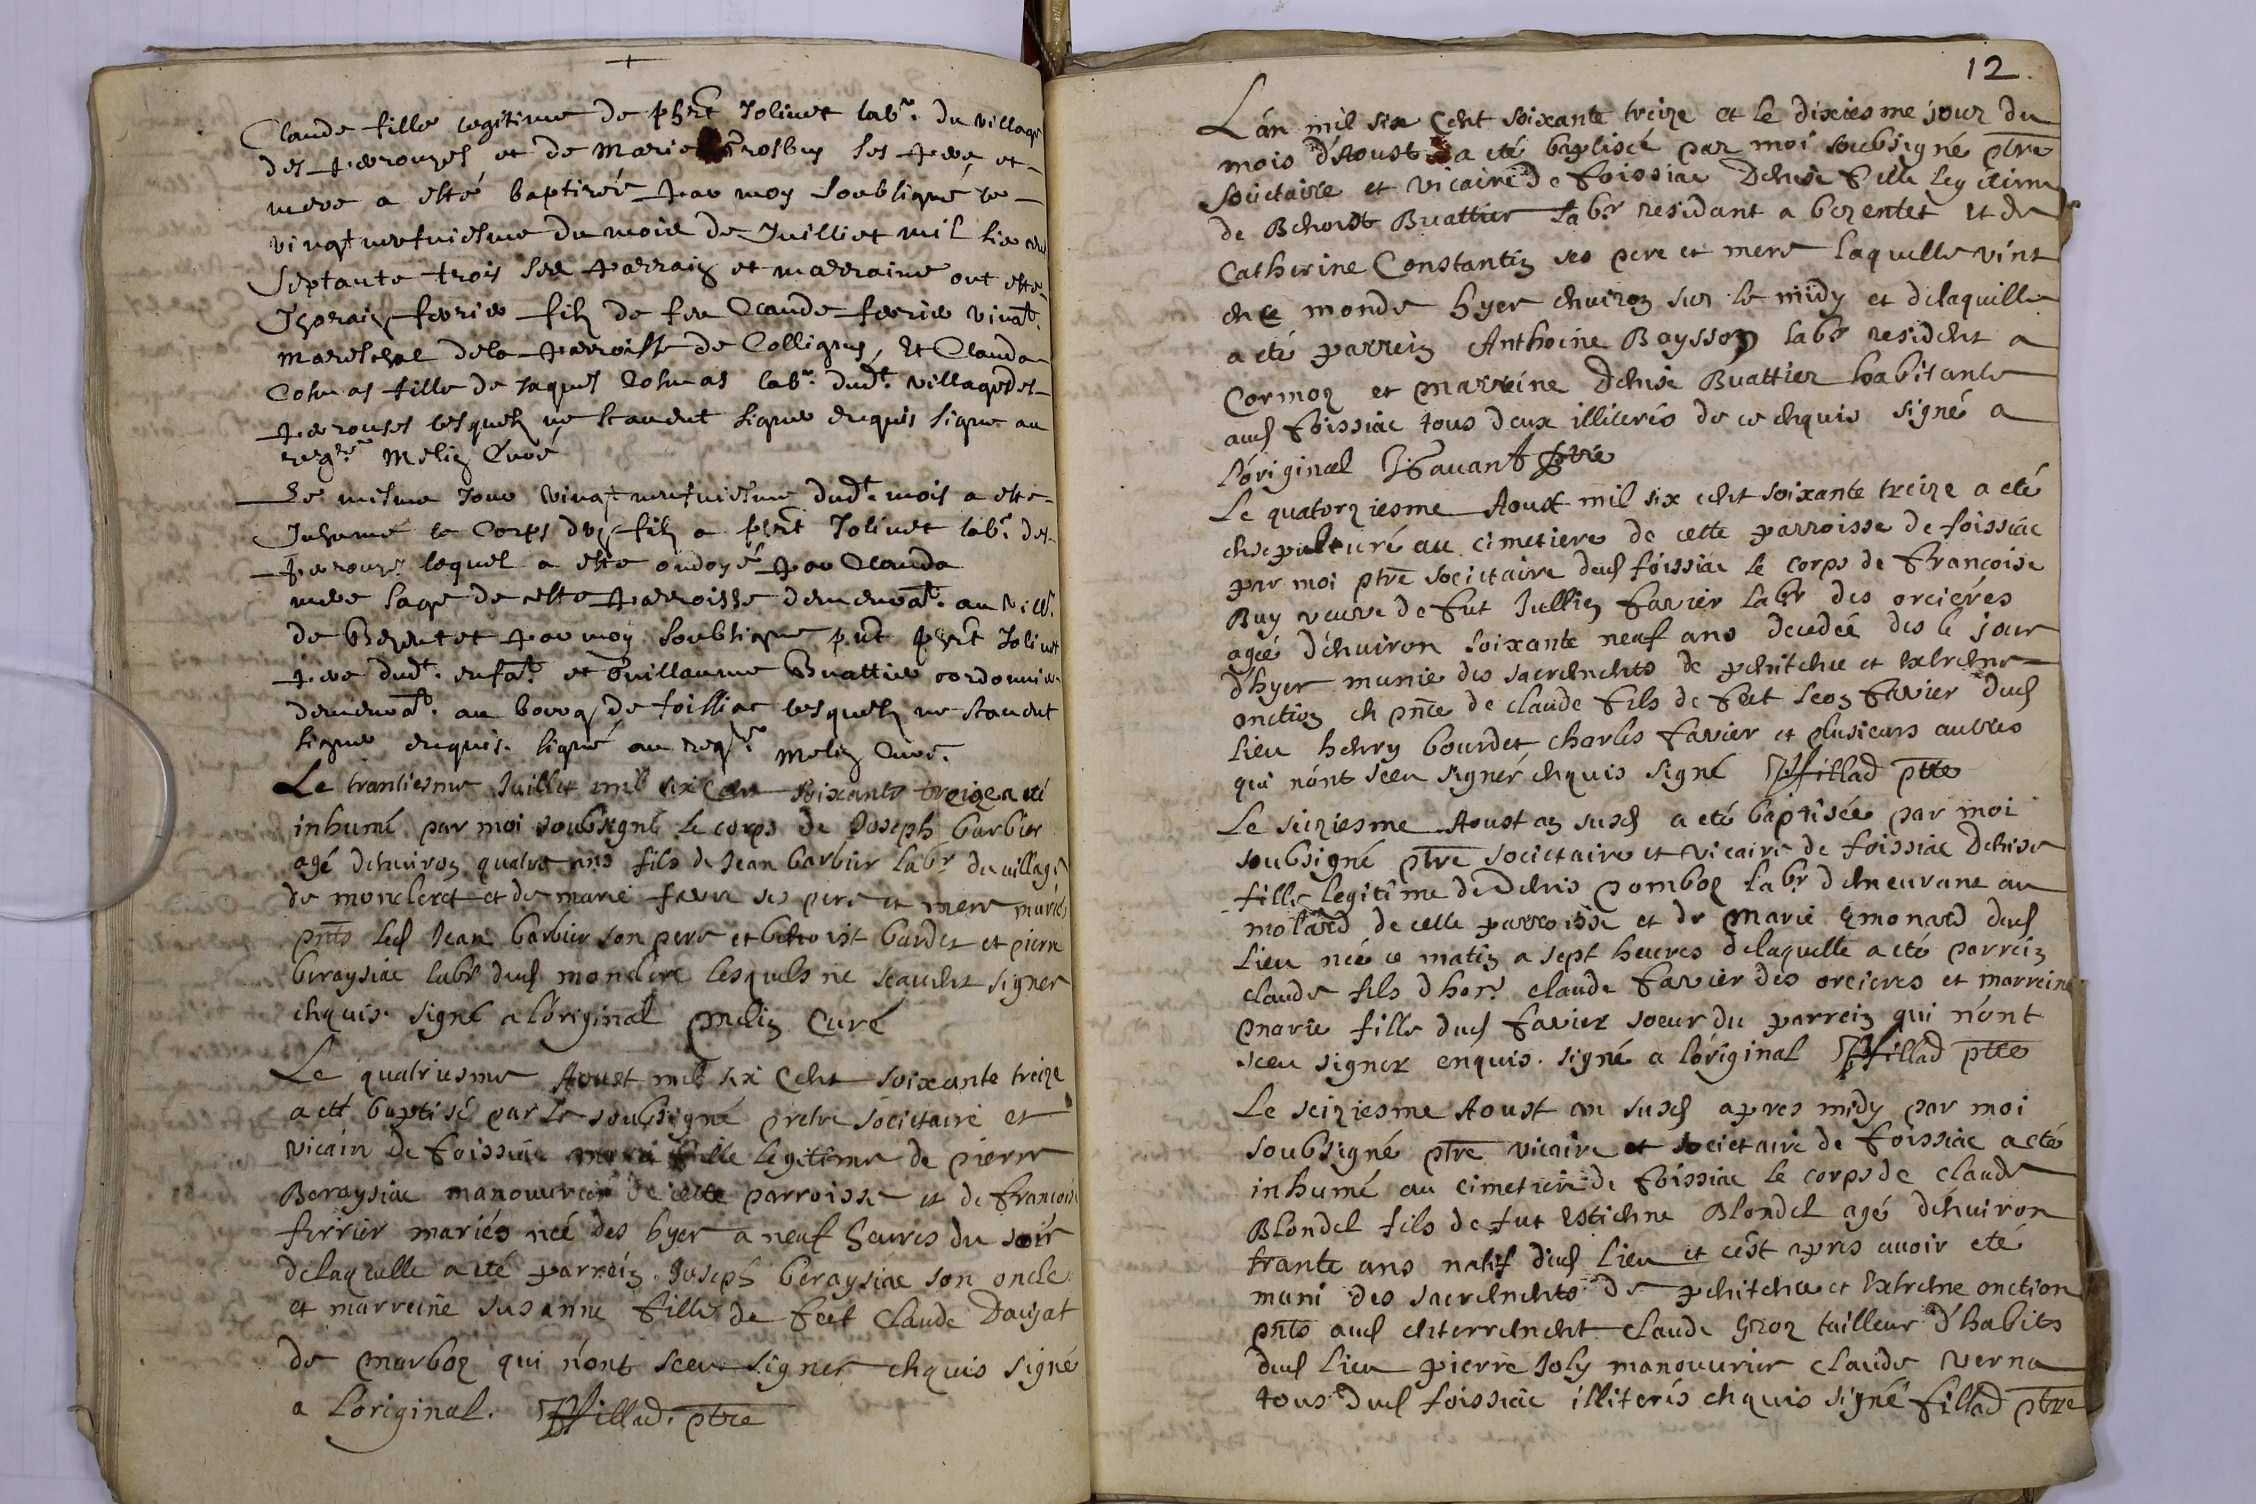 Claude fille legitime de phrt Joliuet labr. du village
des perouzes et de Marie Grosbuy ses pere et
mere a esté baptizée par moy soubsigné le
vingt neufuiesme du mois de Juilliet mil six cent
septante trois ses parrain et marraine ont esté
ferrier filz de feu Claude ferrier viuat.
mareschal de la parroisse de Collignes, et Clauda
Colmas fille de Jaques Colmas labr. dudt. village des
perouses lesquelz ne scauent signer enquis signé au
regre Melin Curé
Le mesme Jour vingt neufuiesme dudt. mois a esté
Inhumé le Corps d'un filz a phrt Joliuet labr. des
perouzes lequel a esté ondoyé par Clauda
mere sage de cette parroisse demeurat. au vill.
de Bezentet par moy soubsigne pnt phrt Joliuet
pere dudt. enfat. et Guillaume Buattier cordonnier
demeurat. au bourg de foissiac lesquelz ne scauent
signer enquis. signé au regre Melin Curé.
Le trantiesme Juillet mil six cent soixante treize a eté
inhumé par moi soubsigné le corps de Joseph barbier
agé denuiron quatre ans fils de Jean barbier labr du village
de moncleret et de marie feure ses pere et mere mariés
pnts led Jean barbier son pere et benoist burdet et pierre
beraysiac labr dud monclere lesquels ne scauent signer
enquis. signé a l'original Melin Curé
Le quatriesme Aoust mil six cent soixante treize
a eté baptisé par le soubsigné pretre societaire et
vicain de foissiac marie fille legitime de pierre
Beraysiac manouurier de cette parroisse et de francoise
ferrier mariés née des hyer a neuf heures du soir
delaquelle a eté parrein Joseph beraysiac son oncle
et marreine susanne fille de feut Claude Daujat
de marboz qui n'ont sceu signer enquis signé
a l'original. fillad. ptre
12
L'an mil six cent soixante treize et le dixiesme jour du
mois d'Aoust a eté baptisée par moi soubsigné ptre
societaire et vicaire de foissiac Denise fille legitime
de Benoist Buattier labr residant a bezentet et de
Catherine Constantin ses pere et mere laquelle vint
en ce monde hyer enuiron sur le midy et delaquelle
a eté parrein Anthoine Boysson labr resident a
Cormoz et marreine Denise Buattier habitante
aud foissiac tous deux illiterés de ce enquis signé a
l'original Isauant ptre
Le quatorziesme Aoust mil six cent soixante treize a eté
ensepulturé au cimetiere de cette parroisse de foissiac
par moi ptre societaire dud foissiac le corps de francoise
Buy veuve de fut Jullien favier labr des orcieres
agée d'enuiron soixante neuf ans decedée des le jour
d'hyer munie des sacrements de penitence et extreme
onction en pnce de claude fils de feut Leon favier dud
lieu henry bourdet charles favier et plusieurs autres
qui n'ont sceu signer enquis signé fillad ptre
Le seiziesme Aoust an susd a eté baptisée par moi
soubsigné ptre societaire et vicaire de foissiac Denise
fille legitime de Denis pomboz labr demeurant au
molard de celle parroisse et de marie Emonard dud
lieu née ce matin a sept heures delaquelle a eté parrein
claude fils d'honr. claude favier des orcieres et marreine
marie fille dud favier soeur du parrein qui n'ont
sceu signer enquis. signé a l'original fillad ptre
Le seiziesme Aoust an susd apres midy par moi
soubsigné ptre vicaire et societaire de foissiac a eté
inhumé au cimetiere de foissiac le corps de claude
Blondel fils de fut Estienne Blondel agé d'enuiron
trante ans natif dud lieu et c'est apres auoir eté
muni des sacrements de penitence et Extreme onction
pnts aud enterrement claude tailleur d'habits
dud lieu pierre Joly manouurier claude verna
tous dud foissiac illiterés enquis signé fillad ptre